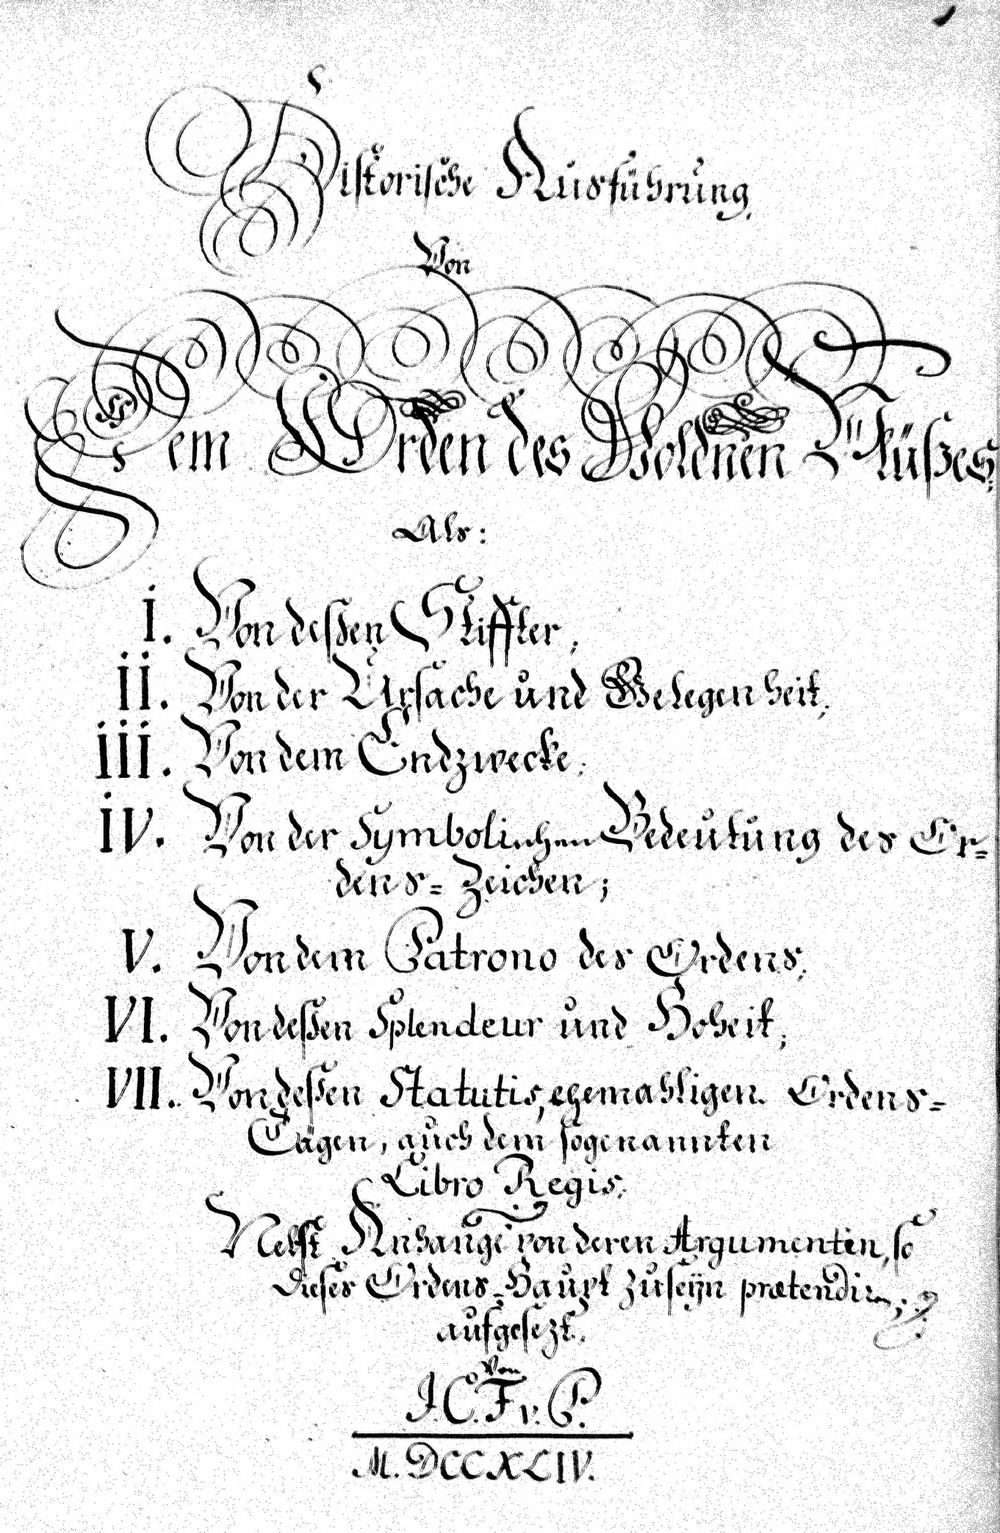 Historische Ausführung,
Von
Dem Orden des Goldnen Flüßes;
Als:
I. Von deßen Stiffter,
II. Von der Ursache und Gelegenheit,
III. Von dem Endzwecke,
IV. Von der Symbolischen Bedeutung des Or-
dens-Zeichen;
V. Von dem Patrono des Ordens,
VI. Von deßen Splendeur und Hoheit,
VII. Von deßen Statutis, ehemahligen Ordens-
Tägen, auch dem sogenannten
Libro Regis.
Nebst Anhange von deren Argumenten, so
dieses Ordens-Haupt zuseÿn prætendirn,
aufgesezt.
Von
J. C. F. v. P.
M. DCCXLIV.